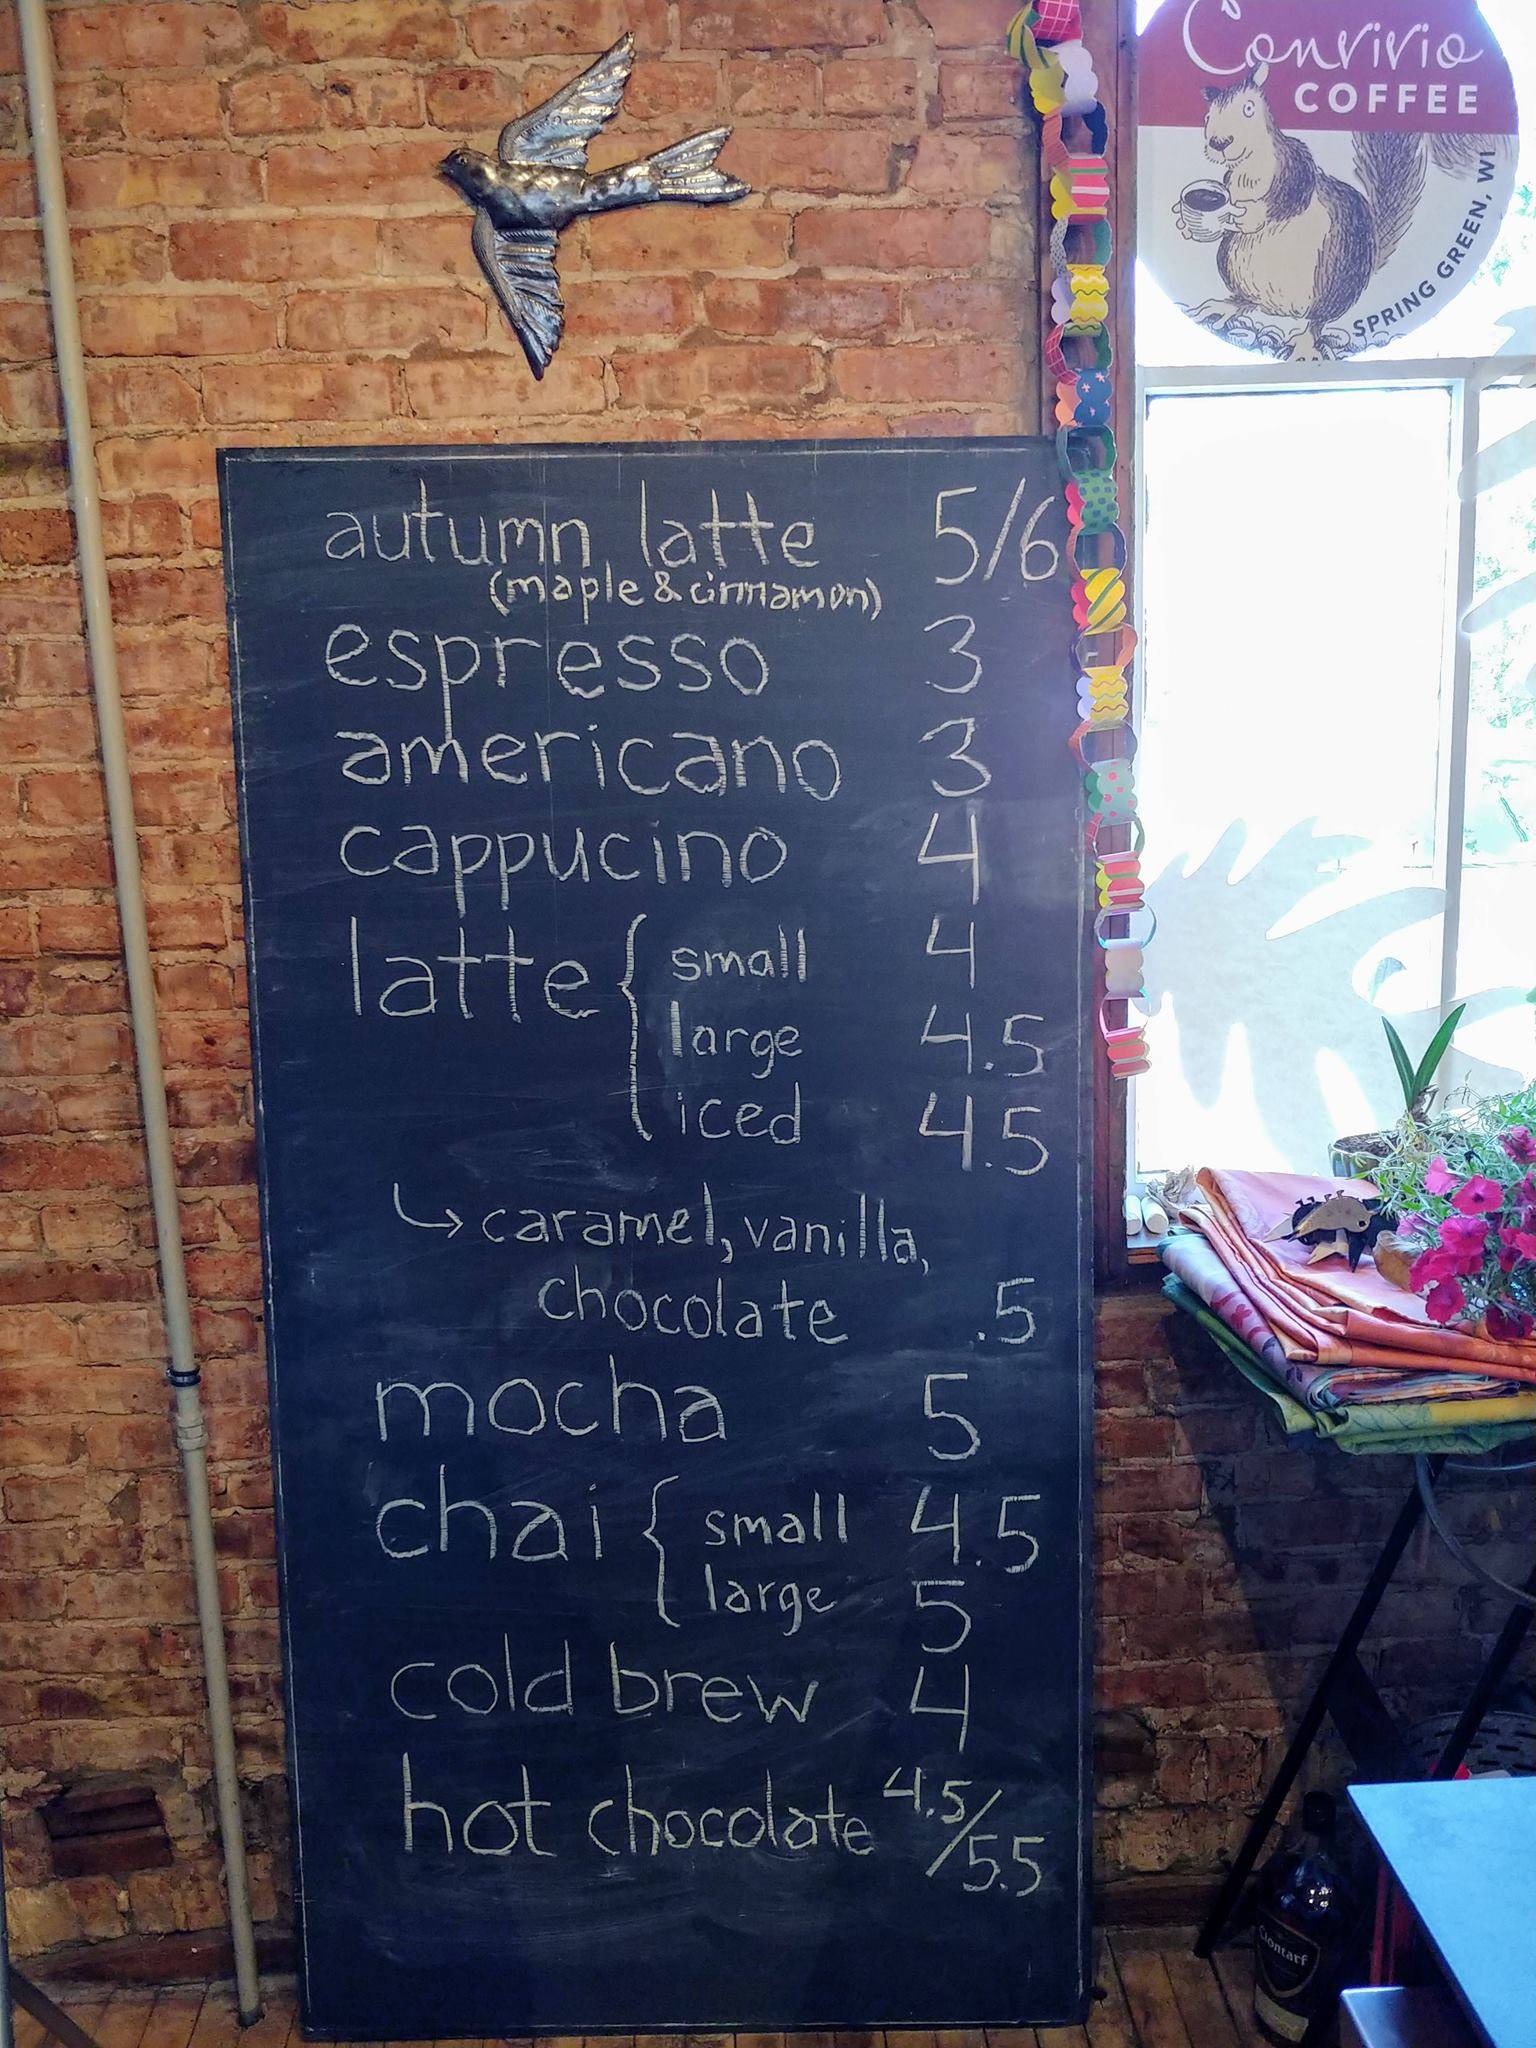 Convivio
COFFEE
SPRING GREEN, WI
autumn latte 5/6
(maple & cinnamon)
espresso 3
americano 3
cappucino 4
latte { small 4
large 4.5
iced 4.5
↳ caramel, vanilla,
chocolate .5
mocha 5
chai { small 4.5
large 5
cold brew 4
hot chocolate 4.5/5.5
Clontarf